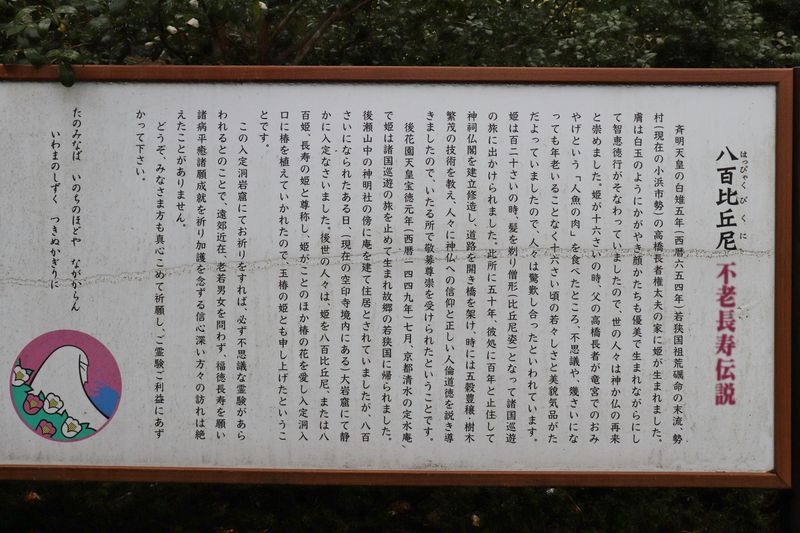 八百比丘尼 不老長寿伝説
はっぴゃくびくに
斉明天皇の白雉五年(西暦六五四年)若狭国祖荒礪命の末流、勢
村(現在の小浜市勢)の高橋長者権太夫の家に姫が生まれました。
膚は白玉のようにかがやき顔かたちも優美で生まれながらにし
て智恵徳行がそなわっていましたので、世の人々は神か仏の再来
と崇めました。姫が十六さいの時、父の高橋長者が竜宮でのおみ
やげという「人魚の肉」を食べたところ、不思議や、幾さいにな
っても年老いることなく十六さい頃の若々しさと美貌気品がた
だよっていましたので、人々は驚歎し合ったといわれています。
姫は百二十さいの時、髪を剃り僧形(比丘尼姿)となって諸国巡遊
の旅に出かけられました。此所に五十年、彼処に百年と止住して
神祠仏閣を建立修造し、道路を開き橋を架け、時には五穀豊穣・樹木
繁茂の技術を教え、人々に神仏への信仰と正しい人倫道徳を説き導
きましたので、いたる所で敬慕尊崇を受けられたということです。
後花園天皇宝徳元年(西暦一四四九年)七月、京都清水の定水庵、
で姫は諸国巡遊の旅を止めて生まれ故郷の若狭国に帰られました。
後瀬山中の神明社の傍に庵を建て住居とされていましたが、八百
さいになられたある日、(現在の空印寺境内にある)大岩窟にて静
かに入定なさいました。後世の人々は、姫を八百比丘尼、または八
百姫、長寿の姫と尊称し、姫がことのほか椿の花を愛し入定洞入
口に椿を植えていかれたので、玉椿の姫とも申し上げたというこ
とです。
この入定洞岩窟にてお祈りをすれば、必ず不思議な霊験があら
われるとのことで、遠郊近在、老若男女を問わず、福徳長寿を願い
諸病平癒諸願成就を祈り加護を念ずる信心深い方々の訪れは絶
えたことがありません。
どうぞ、みなさま方も真心こめて祈願し、ご霊験ご利益にあず
かって下さい。
たのみなば いのちのほどや ながからん
いわまのしずく つきぬかぎりに